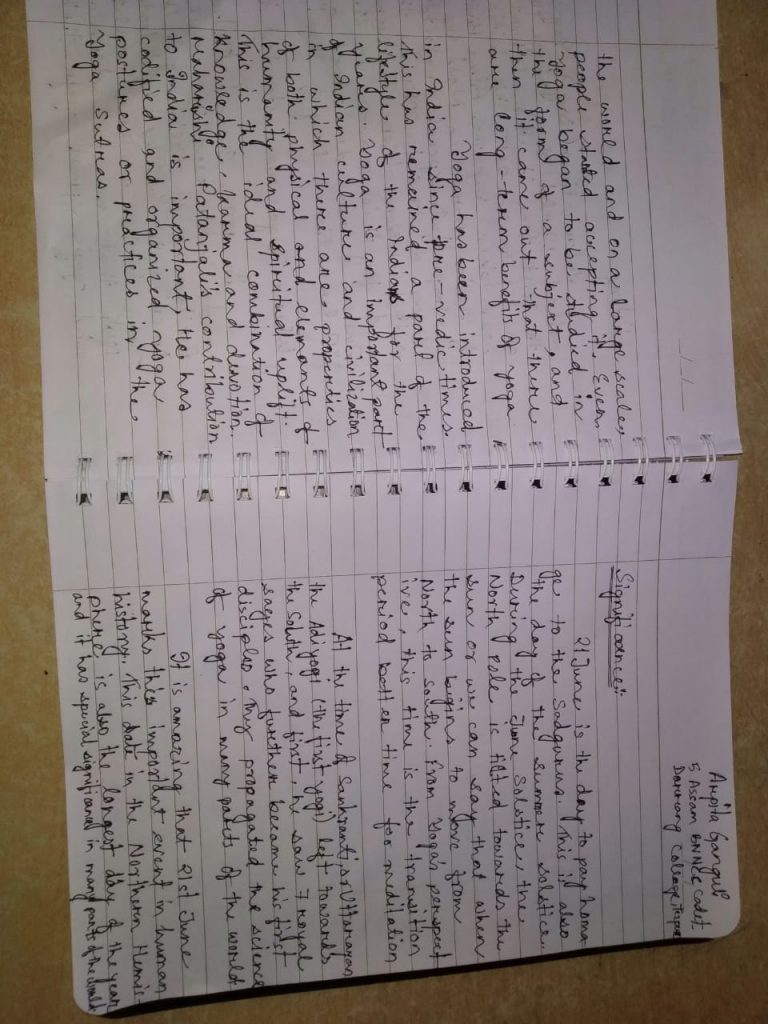 the world and on a large scale,
people started accepting it. Even
Yoga began to be studied in
the form of a subject, and
then it came out that there
are long-term benefits of yoga
Yoga has been introduced
in India since pre-vedic times.
This has remained a part of the
lifestyle of the Indians for the
years. Yoga is an important part
of Indian culture and civilization
in which there are properties
of both physical and elements of
humanity and spiritual uplift.
This is the ideal combination of
knowledge, karma and devotion.
Maharishi Patanjali's contribution
to India is important, He has
codified and organized yoga
postures or practices in the
Yoga Sutras.
Arpita Ganguli
5 Assam BN NCC Cadet
Darrang College, Tezpur
Significance:-
21 June is the day to pay homa
ge to the Sadgurus. This is also
the day of the summer solstice.
During the June Solstice, the
North Pole is tilted towards the
sun or we can say that when
the sun begins to move from
North to South. From Yoga's perspect
ive, this time is the transition
period better time for meditation
At the time of Sankranti, or Uttarayan
the Adiyogi (the first yogi) left towards
the South, and first, he saw 7 royal
sages who further became his first
disciples. They propagated the science
of yoga in many parts of the world
It is amazing that 21st June
marks this important event in human
history. This date in the Northern Hemis-
phere is also the longest day of the year
and it has special significance in many parts of the world